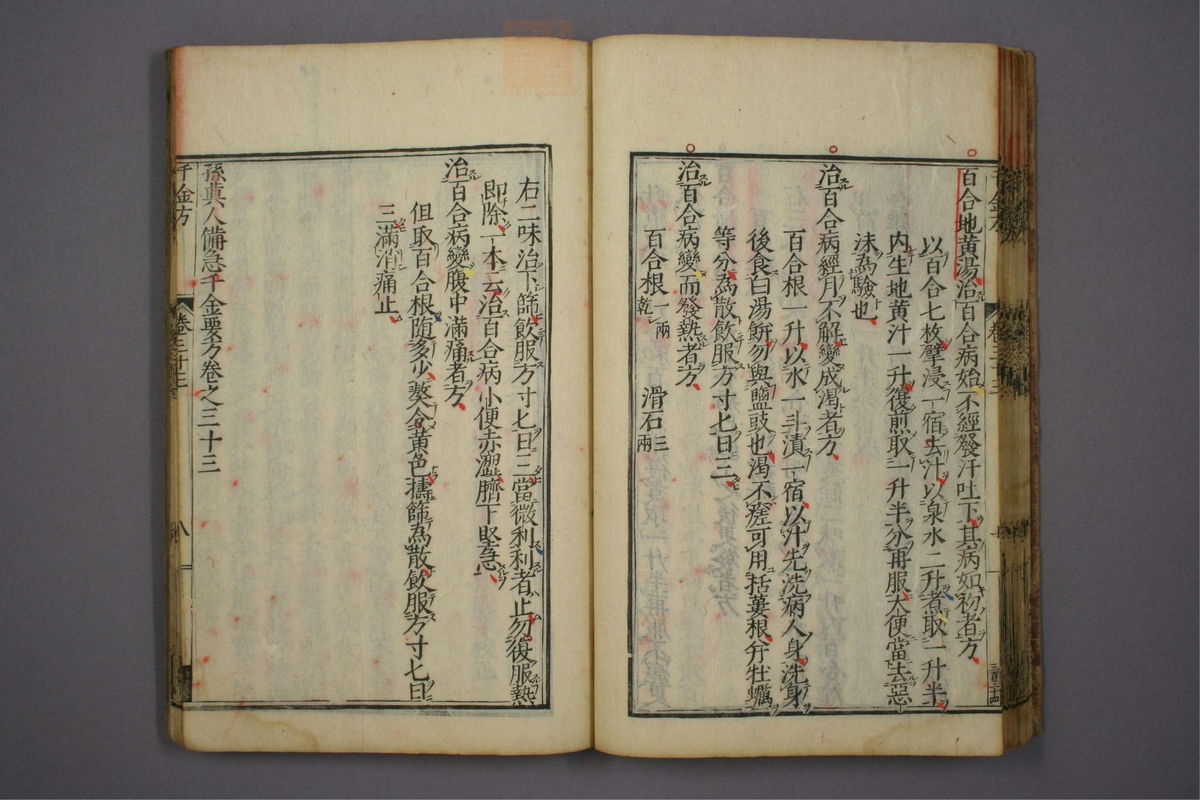 百合地黄湯治百合病始不經發汗吐下其病如初者方
以百合七枚擘浸一宿去汁以泉水二升煮取一升半
内生地黄汁一升復煎取一升半分再服大便當去惡
沫為驗也
治百合病經月不解變成渴者方
百合根一升以水一斗漬一宿以汁先洗病人身洗身
後食白湯餅勿與鹽豉也渴不瘥可用括蔞根并牡蠣
等分為散飲服方寸匕日三
治百合病變而發熱者方
百合根一兩乾 滑石三兩
右二味治下篩飲服方寸匕日三當微利利者止勿復服熱
即除一本云治百合病小便赤澀臍下堅急
治百合病變腹中滿痛者方
但取百合根随多少熬令黄色擣篩為散飲服方寸匕日
三滿消痛止
孫真人備急千金要方卷之三十三
千金方 卷三十三 八